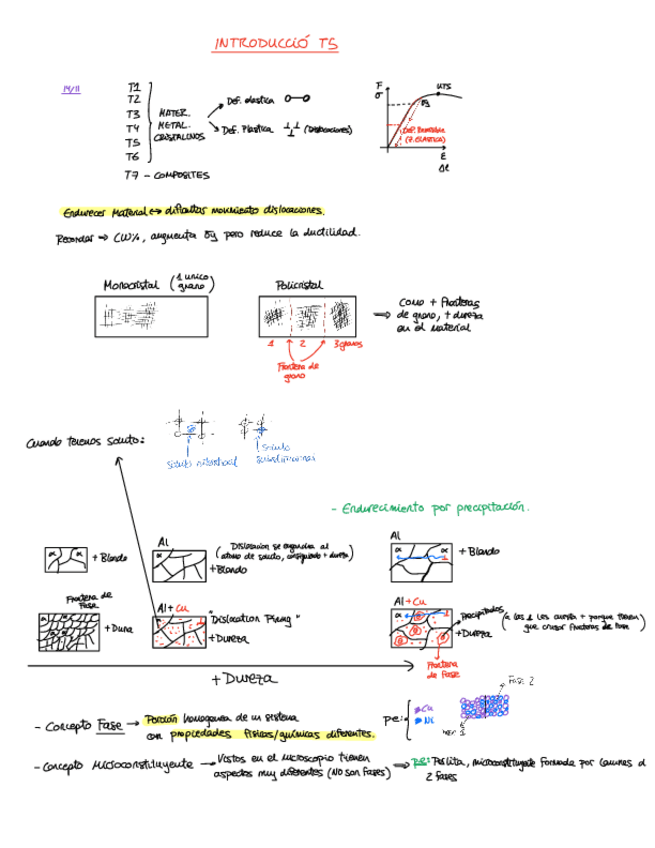 INTRODUCCIÓ T5
14/11
T1
T2
T3
T4
T5
T6
MATER.
METAL.
CRISTALINOS
Def. elastica
Def. Plastica
(Dislocaciones)
T7 - COMPOSITES
F
σ
UTS
σy
(Z. ELASTICA)
ε
Δl
Endurecer Material ↔ dificultar movimiento dislocaciones.
Recordar ⇒ CW%, augmenta σy pero reduce la ductilidad.
Monocristal (1 unico grano)
Policristal
1 2 3 granos
Frontera de
grano
⇒ Como + fronteras
de grano, + dureza
en el material
Cuando tenemos soluto:
soluto intersticial
soluto
substitucional
- Endurecimiento por precipitación.
α α + Blando
Al
α
+ Blando
(Dislocacion se engancha al
atomo de soluto, + dureza)
Al
α α ⊥ + Blando
Frontera de
Fase
+ Dura
Al + Cu
"Dislocation Pining"
+ Dureza
Al + Cu
Precipitados
+ Dureza
(a las ⊥ les cuesta + porque tienen
que cruzar fronteras de fase)
Frontera
de fase
+ Dureza
- Concepto Fase → Porción homogenea de un sistema
con propiedades físicas/químicas diferentes.
pe:
Cu
Ni
Fase 2
- Concepto Microconstituyente → Vistos en el microscopio tienen
aspectos muy diferentes (NO son fases)
⇒ p.e: Perlita, microconstituyente formada por laminas d
2 fases